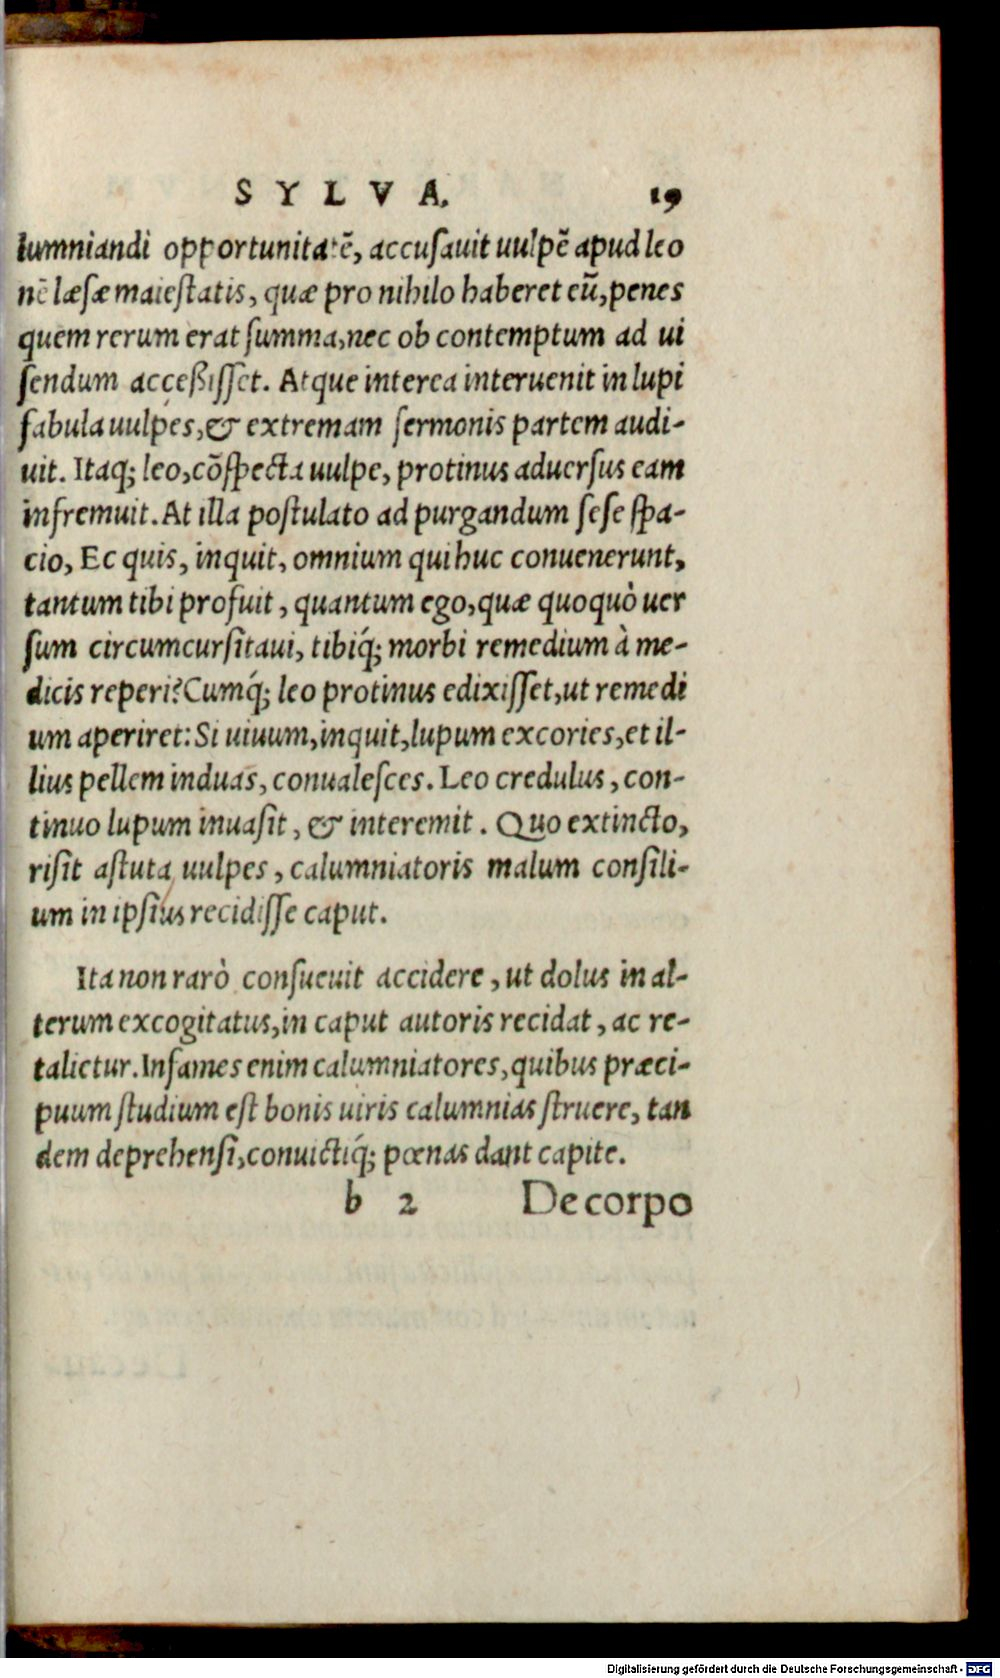 SYLVA. 19
lumniandi opportunitatē, accusauit uulpē apud leo
nē læsæ maiestatis, quæ pro nihilo haberet eū, penes
quem rerum erat summa, nec ob contemptum ad ui
sendum acceßisset. Atque interea interuenit in lupi
fabula uulpes, & extremam sermonis partem audi-
uit. Itaq; leo, cōspecta uulpe, protinus aduersus eam
infremuit. At illa postulato ad purgandum sese spa-
cio, Ec quis, inquit, omnium qui huc conuenerunt,
tantum tibi profuit, quantum ego, quæ quoquò uer
sum circumcursitaui, tibiq́; morbi remedium à me-
dicis reperi? Cumq́; leo protinus edixisset, ut remedi
um aperiret: Si uiuum, inquit, lupum excories, et il-
lius pellem induas, conualesces. Leo credulus, con-
tinuo lupum inuasit, & interemit. Quo extincto,
risit astuta uulpes, calumniatoris malum consili-
um in ipsius recidisse caput.
Ita non rarò consueuit accidere, ut dolus in al-
terum excogitatus, in caput autoris recidat, ac re-
talietur. Infames enim calumniatores, quibus præci-
puum studium est bonis uiris calumnias struere, tan
dem deprehensi, conuictiq́; pœnas dant capite.
b 2 De corpo
Digitalisierung gefördert durch die Deutsche Forschungsgemeinschaft - DFG